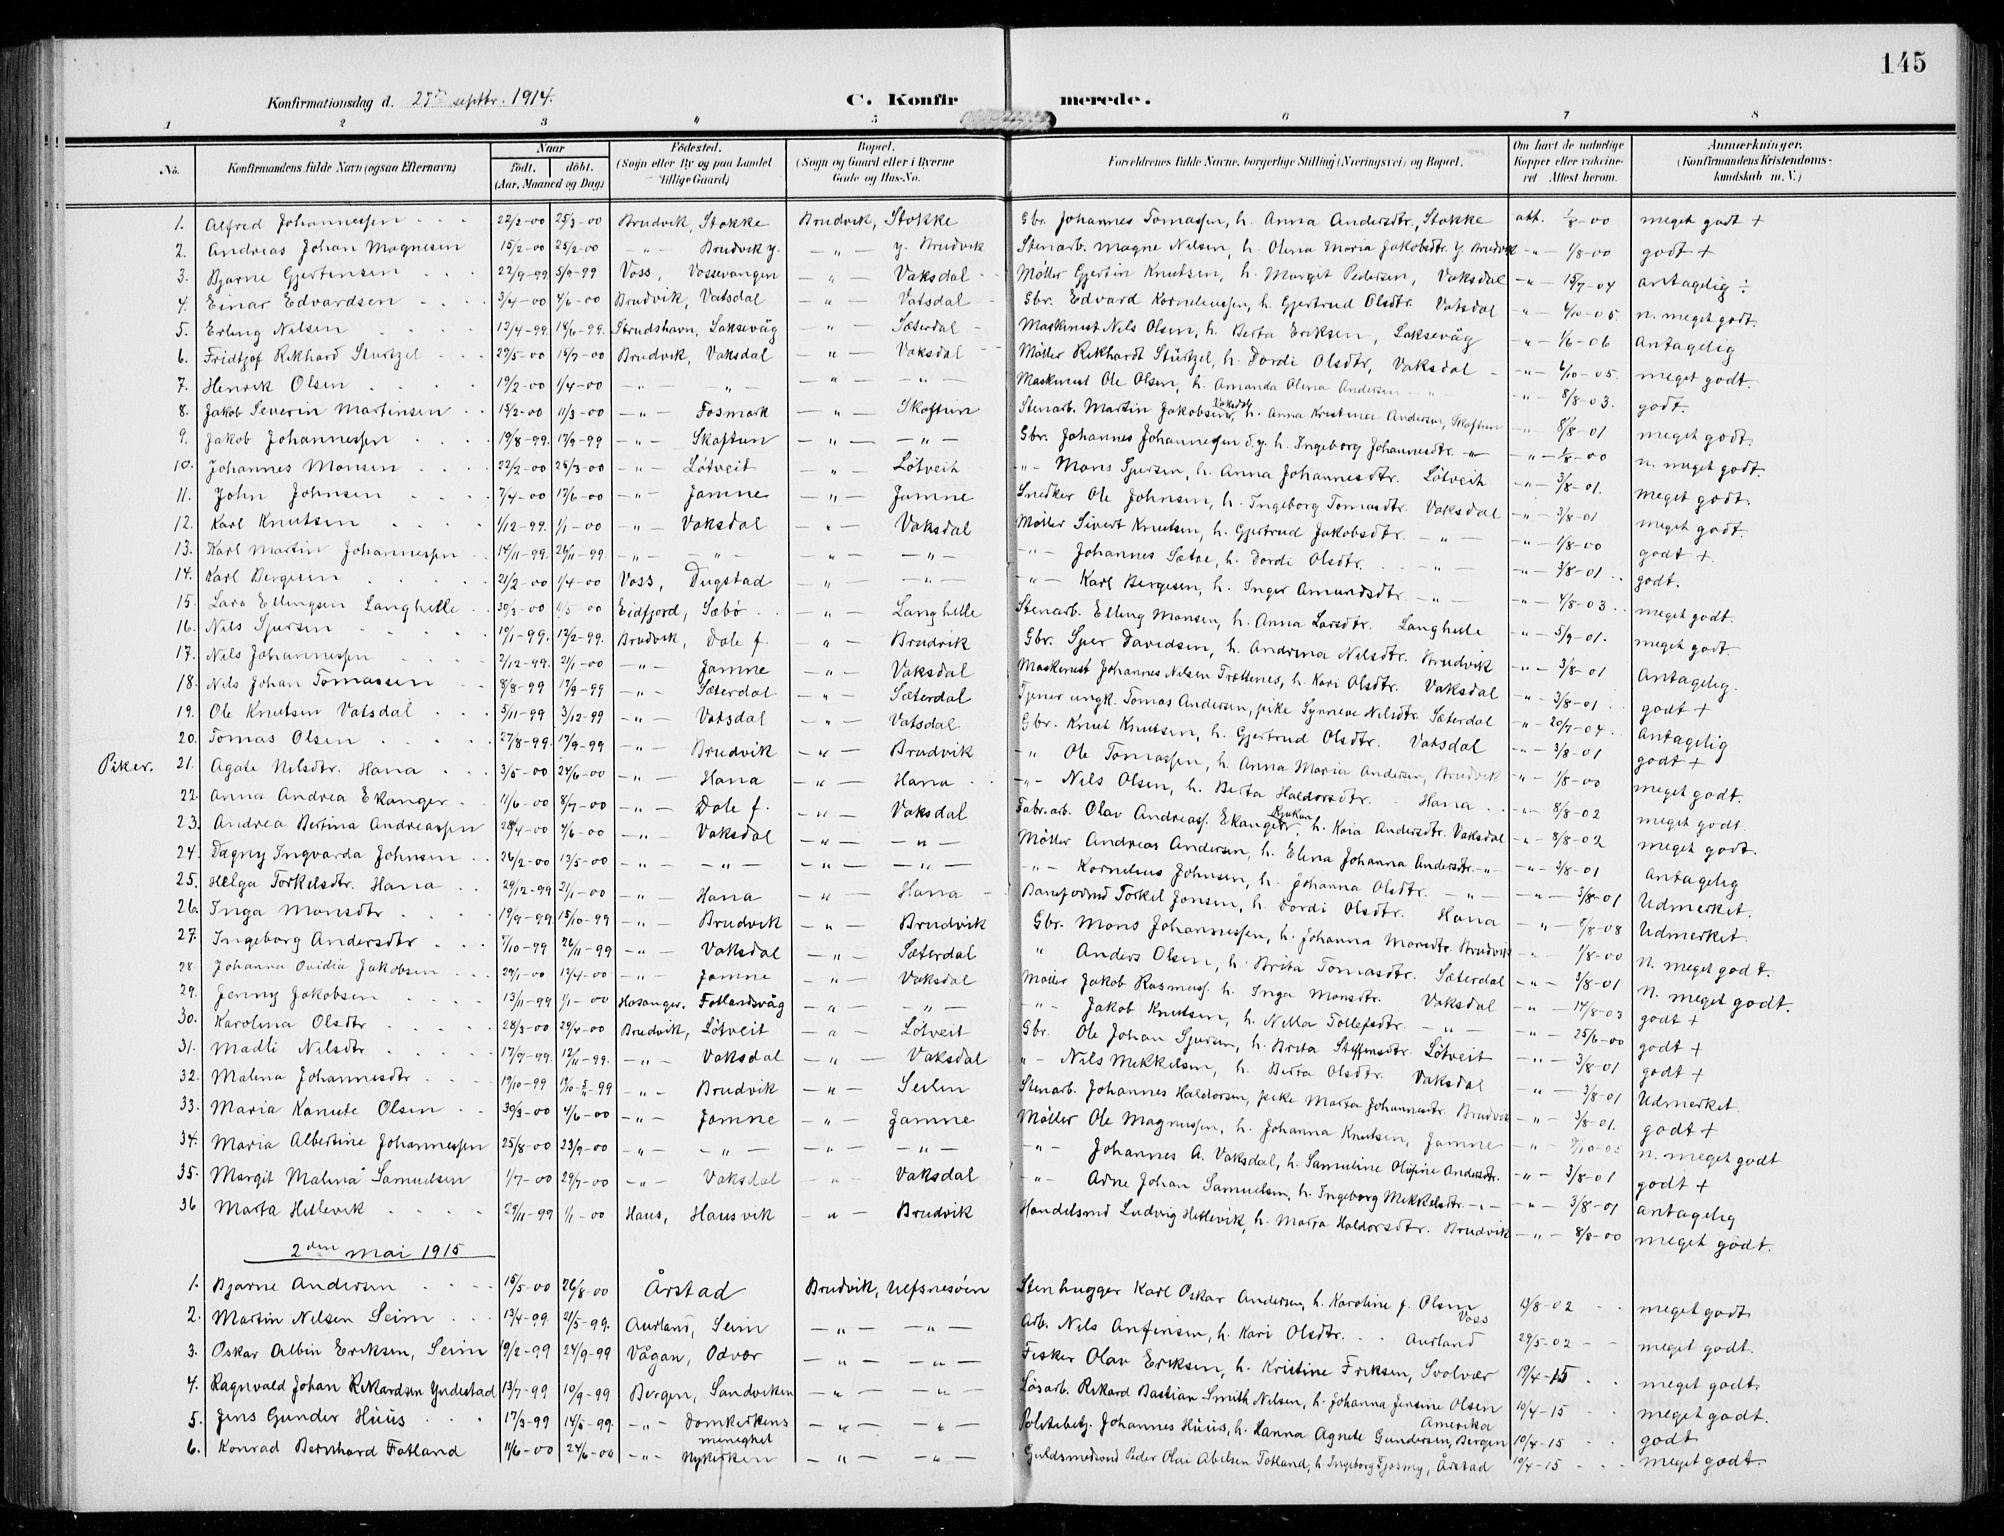 145
Konfirmationsdag d. septbr. 1914. C. Konfirmerede.
1 2 3 " 5 6 7 8
No. Konfirmandens fulde Navn (ogsaa Efternavn) Naar födt. döbt. (Aar, Maaned og Dag) Födested. (Sogn eller By og paa Landet tillige Gaard) Bopæl. (Sogn og Gaard eller i Byerne Gade og Hus-No. Forældrenes fulde Navne, borgerlige Stilling (Næringsvei) og Bopæl. Om havt de naturlige Kopper eller vakcineret Attest herom. Anmærkninger. (Konfirmandens Kristendomskundskab m. V.)
1. Alfred Johannessen 22/2-00 25/3-00 Brudvik, Stokke Brudvik, Stokke Gbr. Johannes Tomassen, h. Anna Andersdtr, Stokke att. 1/8-00 meget godt +
2. Andreas Johan Magnesen 15/2-00 25/2-00 -"- Brudvik y. -"- y. Brudvik Stenarb. Magne Nilsen, h. Olena Maria Jakobsdtr. y. Brudvik -"- 1/8-00 godt +
3. Bjarne Gjertinsen 22/9-99 5/9-99 Voss, Vossevangen -"- Vaksdal Møller Gjertin Knutsen, h. Margit Pedersen, Vaksdal -"- 15/7-04 antagelig ÷
4. Einar Edvardsen 3/4-00 4/6-00 Brudvik, Vatsdal -"- Vatsdal Gbr. Edvard Korneliussen, h. Gjertrud Olsdtr. Vatsdal -"- 4/10-05. n. meget godt.
5. Erling Nilsen 12/4-99. 18/6-99. Strudshavn, Laksevåg -"- Sæterdal Maskinist Nils Olsen, h. Berta Eriksen, Laksevåg -"- 1/6-06 Antagelig
6. Fridtjof Rikhard Sturtzel 29/5-00 14/7-00 Brudvik, Vaksdal -"- Vaksdal Møller Rikhardt Stürtzel, h. Dordi Olsdtr, Vaksdal -"- 6/10-05. meget godt.
7. Henrik Olsen 19/2-00 1/4-00 -"- -"- -"- -"- Maskinist Ole Olsen, h. Amanda Olena Andersen -"- -"- 8/8-03. godt.
8. Jakob Severin Martinsen 15/2-00 11/3-00 -"- Fosmark -"- Skaftun Stenarb. Martin Jakobsen, Vaksdal h. Anna Kristina Andersen, Skaftun -"- 8/8-01 meget godt
9. Jakob Johannessen 19/8-99. 17/9-99 -"- Skaftun -"- -"- Gbr. Johannes Johannessen d.y. h. Ingeborg Johannesdtr. -"- -"- 1/8-00 n. meget godt.
10. Johannes Monsen 22/2-00 25/3-00 -"- Løtveit -"- Lötveit -"- Mons Sjursen, h. Anna Johannesdtr. Lötveit -"- 3/8-01. meget godt.
11. John Johnsen 7/4-00 17/6-00 -"- Jamne -"- Jamne Snedker Ole Johnsen, h. Ingeborg Tomasdtr. Vaksdal -"- 3/8-01 meget godt.
12. Karl Knutsen 1/12-99. 1/1-00 -"- Vaksdal -"- Vaksdal Møller Sivert Knutsen, h. Gjertrud Jakobsdtr. -"- -"- 1/8-00 godt +
13. Karl Martin Johannessen 14/11-99. 26/11-99. -"- -"- -"- -"- -"- Johannes Sætre, h. Dordi Olsdtr. -"- -"- 3/8-01 godt.
14. Karl Bergesen 21/2-00 1/4-00 Voss, Dugstad -"- -"- -"- Karl Bergesen, h. Inger Amundsdtr. -"- -"- 4/8-03. meget godt.
15. Lars Ellingsen Langhelle 30/3-00 Eidfjord, Sæbø -"- Langhelle Stenarb. Elling Monsen, h. Anna Larsdtr. Langhelle -"- 5/9-01. meget godt.
16. Nils Sjursen 10/1-99. 12/2-99. Brudvik, Dale f. -"- Brudvik Gbr. Sjur Davidsen, h. Andrina Nilsdtr. Brudvik -"- 3/8-01 Antagelig.
17. Nils Johannessen 2/12-99. 21/1-00 -"- Jamne -"- Vaksdal Maskinist Johannes Nilsen Trættenes, h. Kari Olsdtr. Vaksdal -"- 3/8-01 godt +
18. Nils Johan Tomassen 8/8-99 17/9-99 -"- Sæterdal -"- Sæterdal Tjener ungk. Tomas Andersen, pike Synneve Nilsdtr. Sæterdal -"- 20/7-04. Antagelig
19. Ole Knutsen Vatsdal 5/11-99 3/12-99 -"- Vatsdal -"- Vatsdal Gbr. Knut Knutsen, h. Gjertrud Olsdtr. Vatsdal -"- 3/8-01 godt +
20. Tomas Olsen 27/8-99. 17/9-99 -"- Brudvik -"- Brudvik -"- Ole Tomassen, h. Anna Maria Andersen, Brudvik -"- 1/8-00 meget godt.
Piker. 21. Agate Nilsdtr. Hana 3/5-00 24/6-00 -"- Hana -"- Hana -"- Nils Olsen, h. Berta Haldorsdtr. Hana -"- 8/8-02 meget godt.
22. Anna Andrea Ekanger 11/6-00 8/7-00 -"- Dale f. -"- Vaksdal Fabr.arb. Olav Andreass. Ekanger, Rjukan h. Kaia Andersdtr. Vaksdal -"- 8/8-02 meget godt.
23. Andrea Bertina Andreassen 28/4-00 4/6-00 -"- Vaksdal -"- -"- Møller Andreas Andersen, h. Elina Johanna Andersdtr. -"- -"- 3/8-01 Antagelig
24. Dagny Ingvarda Johnsen 26/2-00 13/5-00 -"- -"- -"- -"- -"- Kornelius Johnsen, h. Johanna Olsdtr. -"- -"- 3/8-01 Udmerket.
25. Helga Torkelsdtr. Hana 29/12-99 21/1-00 -"- Hana -"- Hana Torkel Jonsen, h. Dordi Olsdtr. Hana -"- /8-08 Udmerket
26. Inga Monsdtr 19/9-99 15/10-99 -"- Brudvik -"- Brudvik Gbr. Mons Johannessen, h. Johanna Monsdtr. Brudvik -"- 1/8-00 n. meget godt.
27. Ingeborg Andersdtr 7/10-99 26/11-99 -"- Vaksdal -"- Sæterdal " Anders Olsen, h. Brita Tomasdtr. Sæterdal -"- 3/8-01 n. meget godt.
28 Johanna Ovidia Jakobsen 29/1-00 17/4-00 -"- Jamne -"- Vaksdal Møller Jakob Rasmuss. h. Inga Monsdtr. Vaksdal -"- 14/8-03 godt +
29. Jenny Jakobsen 13/11-99 1/1-00 Hosanger, Fotlandsvåg -"- -"- -"- Jakob Knutsen, h. Nilla Tollefsdtr. -"- -"- 25/6-00 godt +
30. Karolina Olsdtr 28/3-00 29/4-00 Brudvik, Lötveit -"- Lötveit Gbr. Ole Johan Sjursen, h. Brita Steffensdtr. Lötveit -"- 3/8-01 godt +
31. Madli Nilsdtr 17/9-99. 12/11-99. -"- Vaksdal -"- Vaksdal -"- Nils Mikkelsen, h. Berta Olsdtr. Vaksdal -"- 3/8-01 Udmerket.
32. Malena Johannesdtr 19/10-99 -99 -"- Brudvik -"- Seilen Stenarb. Johannes Haldorsen, pike Marta Johannesdtr. Brudvik -"- 3/8-01. godt +
33. Maria Kanute Olsen 30/3-00 4/6-00 -"- Jamne -"- Jamne Møller Ole Magnussen, h. Johanna Knutsen, Jamne -"- 9/10-05 n. meget godt
34. Maria Albertine Johannessen 25/8-00 23/9-00 -"- -"- -"- -"- -"- Johannes A. Vaksdal, h. Samuline Olefine Andersdtr. -"- 3/8-01 godt +
35. Margit Malena Samuelsen 1/7-00 29/7-00 -"- Vaksdal -"- Vaksdal -"- Arne Johan Samuelsen, h. Ingeborg Mikkelsdtr. -"- -"- 3/8-01 antagelig
36 Marta Hetlevik 29/11-99 1/1-00 Haus, Hausvik -"- Brudvik Handelsmd Ludvig Hetlevik, h. Marta Haldorsdtr. Brudvik -"- 8/8-00 meget godt.
2den mai 1915
1. Bjarne Andersen 15/5-00 26/8-00 Årstad Brudvik, Ulfsnesöen Stenhugger Karl Oskar Andersen, h. Karoline f. Olsen 13/8-02 meget godt
2. Martin Nilsen Seim 13/4-99. 21/5-99. Aurland, Seim -"- -"- Arb. Nils Anfinsen, h. Kari Olsdtr. Voss Aurland 29/5-02 meget godt.
3. Oskar Albin Eriksen, Seim 19/2-99 24/9-99 Vågan, Odvær -"- -"- Fisker Olav Eriksen, h. Kristine Eriksen, Svolvær 19/4-15 meget godt.
4. Ragnvald Johan Rikardsen Yndestad 13/7-99 10/9-99 Bergen, Sandviken -"- -"- Løsarb. Rikard Bastian Smith Nilsen, h. Johanna Jensine Olsen 10/4-15 meget godt.
5. Jens Gunder Hüüs 17/3-99 14/5-99. -"- Domkirkens menighet -"- -"- Politibetj. Johannes Hüüs, h. Hanna Agnete Gundersen, Bergen Amerika 10/4-15 godt
6. Konrad Bernhard Fotland 11/6-00 24/6-00 -"- Nykirken -"- -"- Guldsmedsvend Peder Olai Abelsen Fotland, h. Ingeborg, Årstad 10/4-15 meget godt.